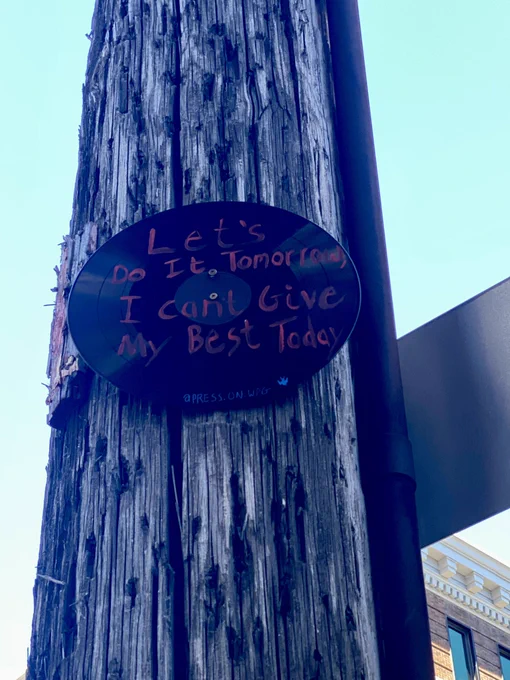 Let's
Do It. Tomorrow,
I cant Give
My Best Today
@PRESS.ON.WPG